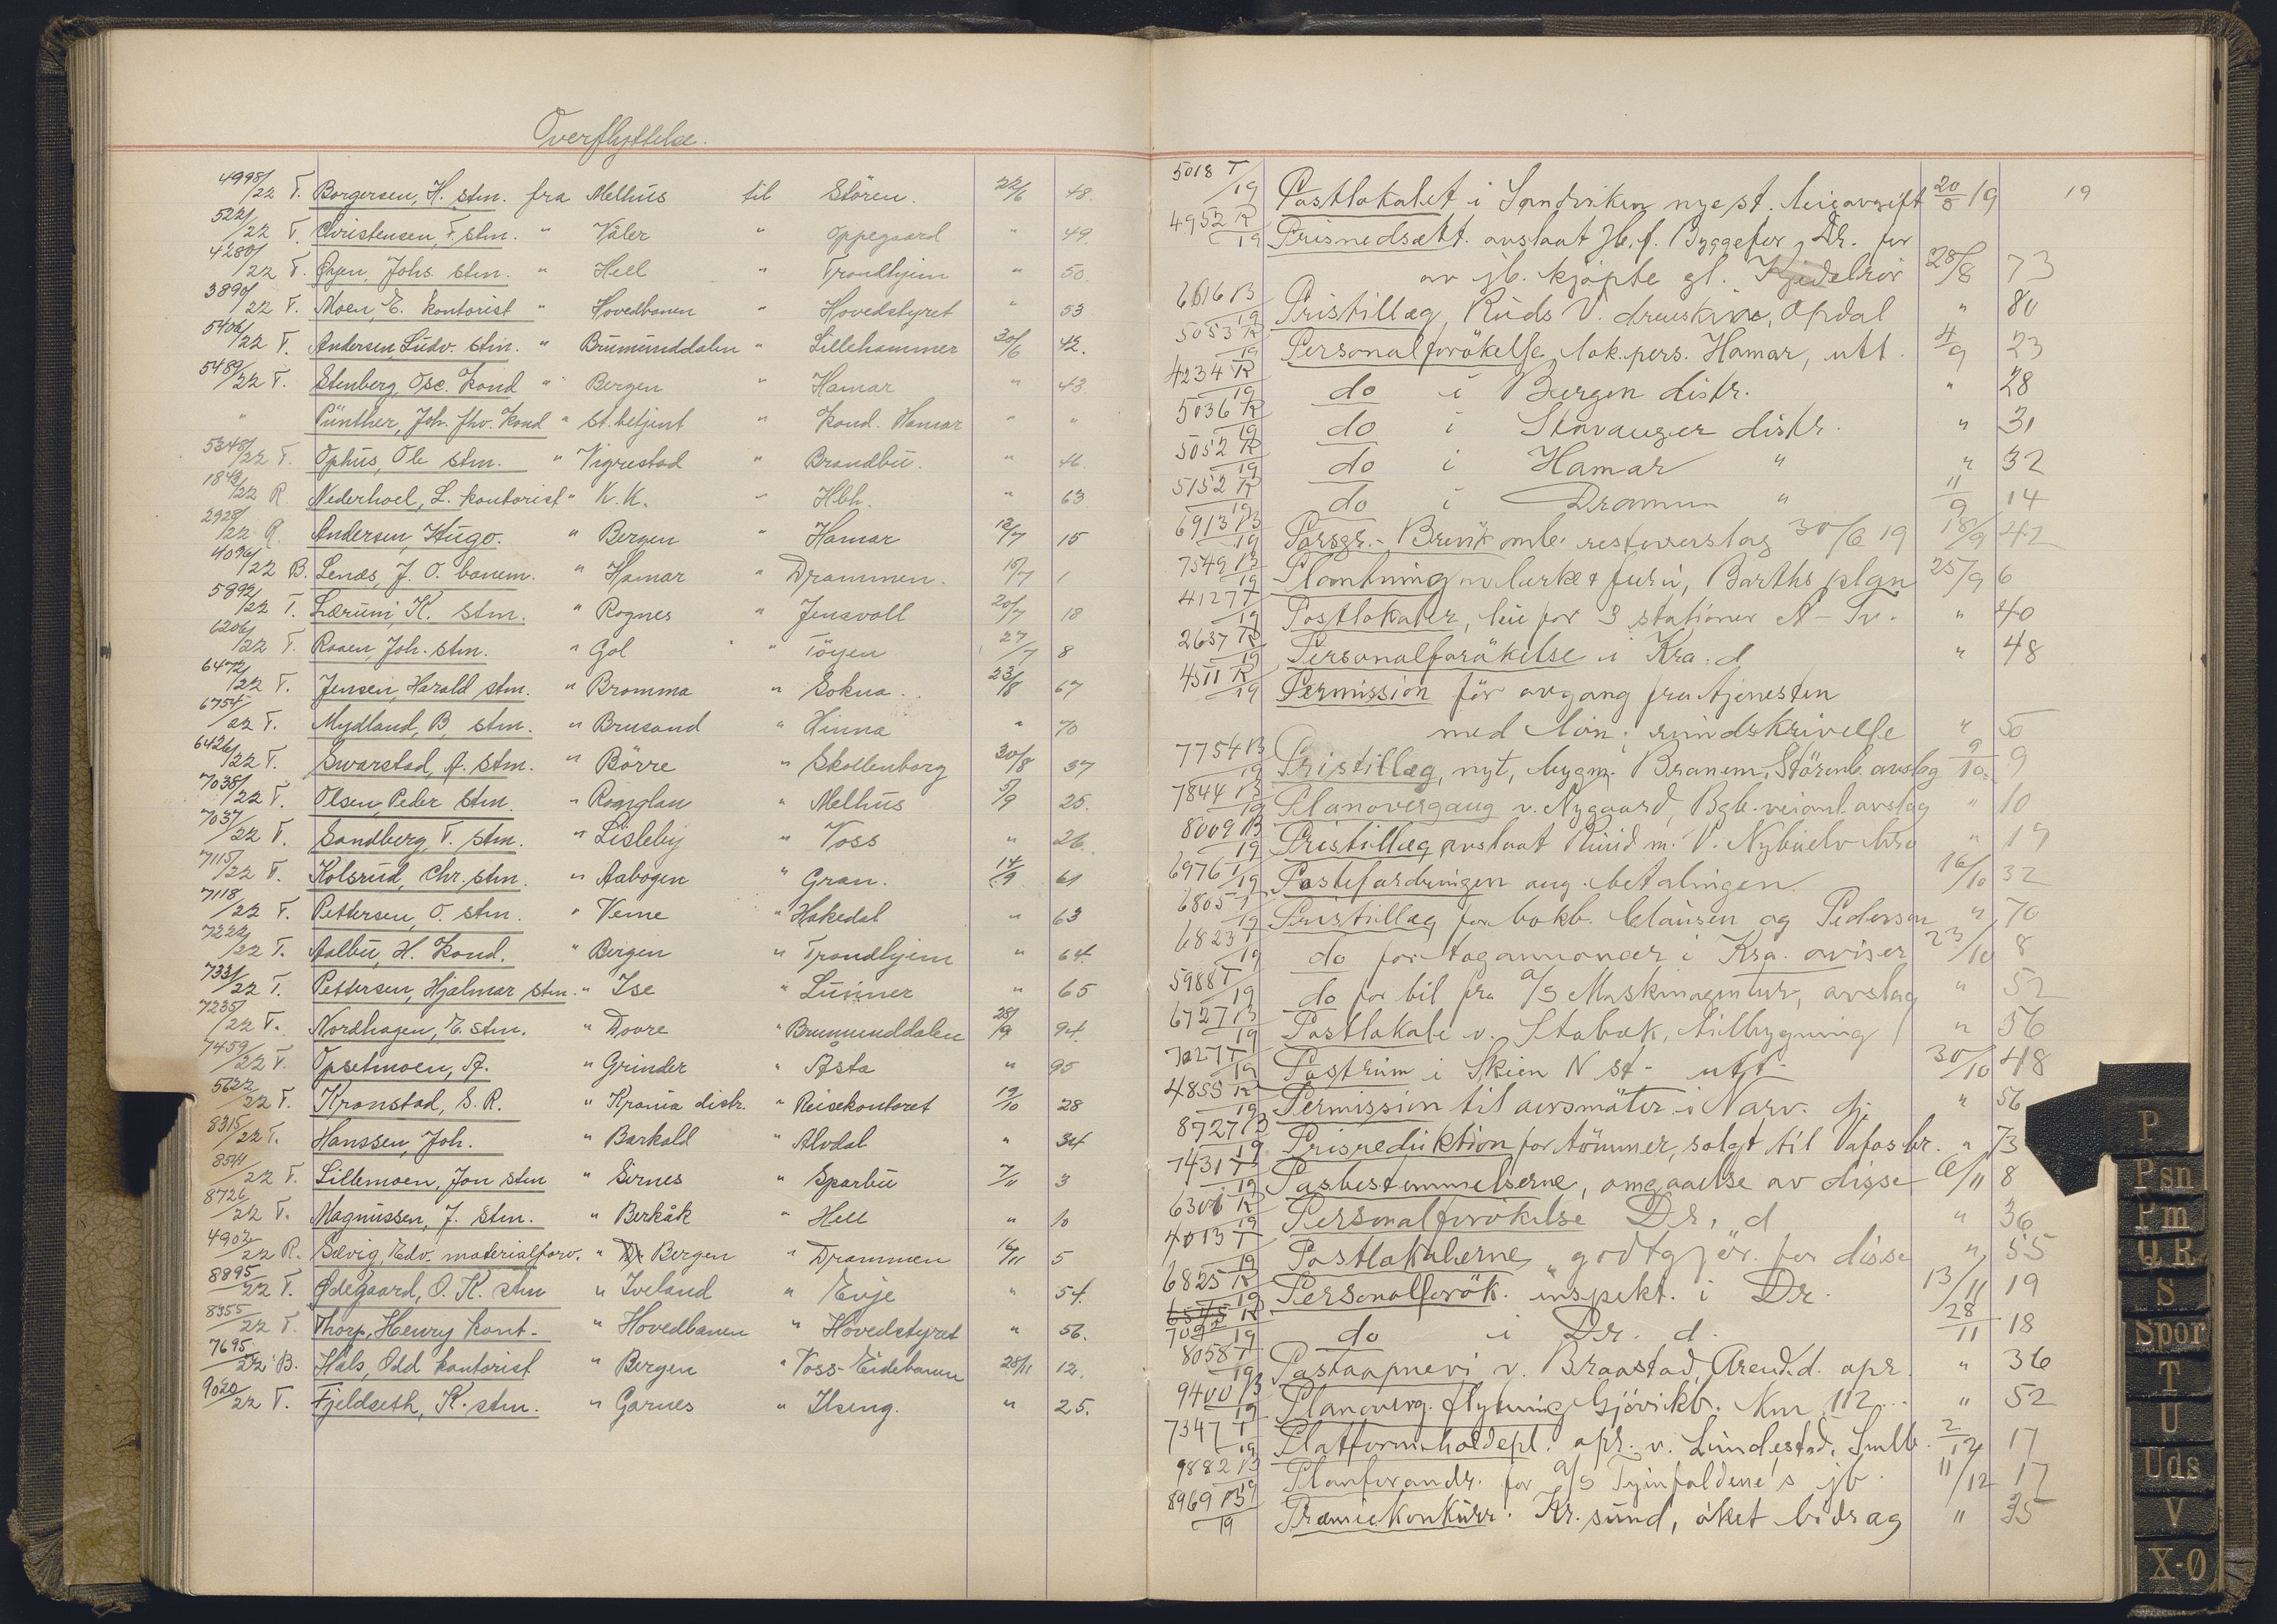 Overflyttelse.
4998/22 T. Borgersen, H. stm. fra Melhus til Stören. 22/6 48.
5221/22 T. Christensen, F. stm. " Våler " Oppegaard " 49.
4280/22 T. Öyen, Johs. stm. " Hell " Trondhjem " 50.
3890/22 T. Moen, E. kontorist " Hovedbanen " Hovedstyret " 53
5406/22 T. Andersen, Ludv. stm. " Brumunddalen " Lillehammer 30/6 42.
5489/22 T. Stenberg, Osc. kond " Bergen " Hamar " 43.
" Pünther, Joh. fhv. kond " st.betjent " kond. Hamar " "
5348/22 T. Ophus, Ole stm. " Vigrestad " Brandbu. " 46.
1843/22 R. Nederhoel, L. kontorist " K.K. " Hbh. " 63
2928/22 R. Andersen, Hugo. " Bergen " Hamar 13/7 15
4096/22 B. Lenæs, J. O. banem. " Hamar " Drammen. 15/7 1
5892/22 T. Lærum, K. stm. " Rognes " Jensvoll 20/7 18
6206/22 T. Roaen, Joh. stm. " Gol " Töyen 27/7 8
6472/22 T. Jensen, Harald stm. " Bromma " Sokna 23/8 67
6754/22 T. Mydland, B. stm. " Brusand " Hinna " 70
6426/22 T. Svarstad, A. stm. " Börre " Skollenborg 30/8 37
7038/22 T. Olsen, Peder stm. " Romglan " Melhus 5/9 25.
7037/22 T. Sandberg, T. stm. " Lisleby " Voss " 26.
7115/22 T. Kolsrud, Chr. stm. " Aabogen " Gran. 14/9 61
7118/22 T. Pettersen, O. stm. " Verne " Hakedal " 63
7222/22 T. Aalbu, H. kond. " Bergen " Trondhjem " 64.
7331/22 T. Pettersen, Hjalmar stm. " Ise " Lunner " 65
7235/22 T. Nordhagen, E. stm. " Dovre " Brumunddalen 28/9 94.
7459/22 T. Opsetmoen, A. " Grinder " Åsta " 95
5622/22 T. Kronstad, S. R. " Krania distr. " Reisekontoret 19/10 28
8315/22 T. Hanssen, Joh. " Barkald " Alvdal " 34
8541/22 T. Lillemoen, Jon stm " Sirnes " Sparbu 7/11 3
8726/22 T. Magnussen, J. stm. " Berkåk " Hell " 10
4902/22 R. Sævig, Edv. materialforv. " Bergen " Drammen 16/11 5
8895/22 T. Ödegaard, O. K. stm " Iveland " Evje " 54.
8355/22 T. Thorp, Henry kont. " Hovedbanen " Hovedstyret " 56.
7695/22 B. Hals, Odd kontorist " Bergen " Voss-Eidebanen 28/11 12.
9020/22 T. Fjeldseth, K. stm. " Garnes " Ilseng. " 25.
5018 T/19 Postlokalet i Sandviken nye st. leieavgift 20/8 19 19
4952 R/19 Prisnedsætt. avslaat Hb. f. Byggefor, Dr. for
av jb. kjöpte gl. Kjedelrör 28/8 73
6616 B/19 Pristillæg, Ruds V. , Opdal " 80
5053 R/19 Personalforökelse, lok. pers. Hamar, utt. 4/9 23
4234 R/19 do i Bergen distr. " 28
5036 R/19 do i Stavanger distr. " 31
5052 R/19 do i Hamar " " 32
5152 R/19 do i Drammen " 11/9 14
6913 B/19 Porsgr.- Brevik omb. restoverslag 30/6 19 18/9 42
7549 B/19 Plantning av lærk & furu, Barths plan 25/9 6
4127 T/19 Postlokaler, leie for 3 stationer A - Tv. " 40
2637 R/19 Personalforökelse i Kra. d " 48
4511 R/19 Permission för avgang fra tjenesten
med lön: rundskrivelse " 50
7754 B/19 Pristillæg, nyt, bygm. Branem, Störenb. avslag 9/10 9
7844 B/19 Planovergang v. Nygaard, Bgb. veianl. avslag " 10
8009 B/19 Pristillæg avslaat Ruud m. V. Nybuelv bro " 19
6976 T/19 Postefordringen ang. betalingen. 16/10 32
6805 T/19 Pristillæg for bokb. Clausen og Pedersen " 70
6823 T/19 do for togannoncer i Kra. aviser 23/10 8
5988 T/19 do for bil fra A/S Maskinagentur, avslag " 52
6727 B/19 Postlokale v. Stabæk, tilbygning " 56
7027 T/19 Postrum i Skien N st - utt. 30/10 48
4855 R/19 Permission til avsmöter i Narv. d. " 56
8727 B/19 Prisreduktion for tömmer, solgt til Vafos br. " 73
7431 T/19 Pasbestemmelserne, omgaaelse av disse 6/11 8
6301 R/19 Personalforökelse Dr. d " 36
4013 T/19 Postlokalerne, godtgjör. for disse " 55
6825 R/19 Personalforök. inspekt. i Dr. 13/11 19
6545 R 7092/19 do i Dr. d. 28/11 18
8058 T/19 Postaapneri v. Braastad, Arend. d. opr. " 36
9400 B/19 Planoverg. flytning Gjövikb. Km 112... " 52
7347 T/19 Platformholdepl. opr. v. Lundestad, Smlb. 2/12 17
9882 B/19 Planforandr. for A/S Tyinfaldene's jb. 11/12 17
8969 B/19 Præmiekonkurr. Kr.sund, öket bidrag " 35
P
Psn
Pm
Q R
S
Spor
T
U
Uds
V
X-Ø